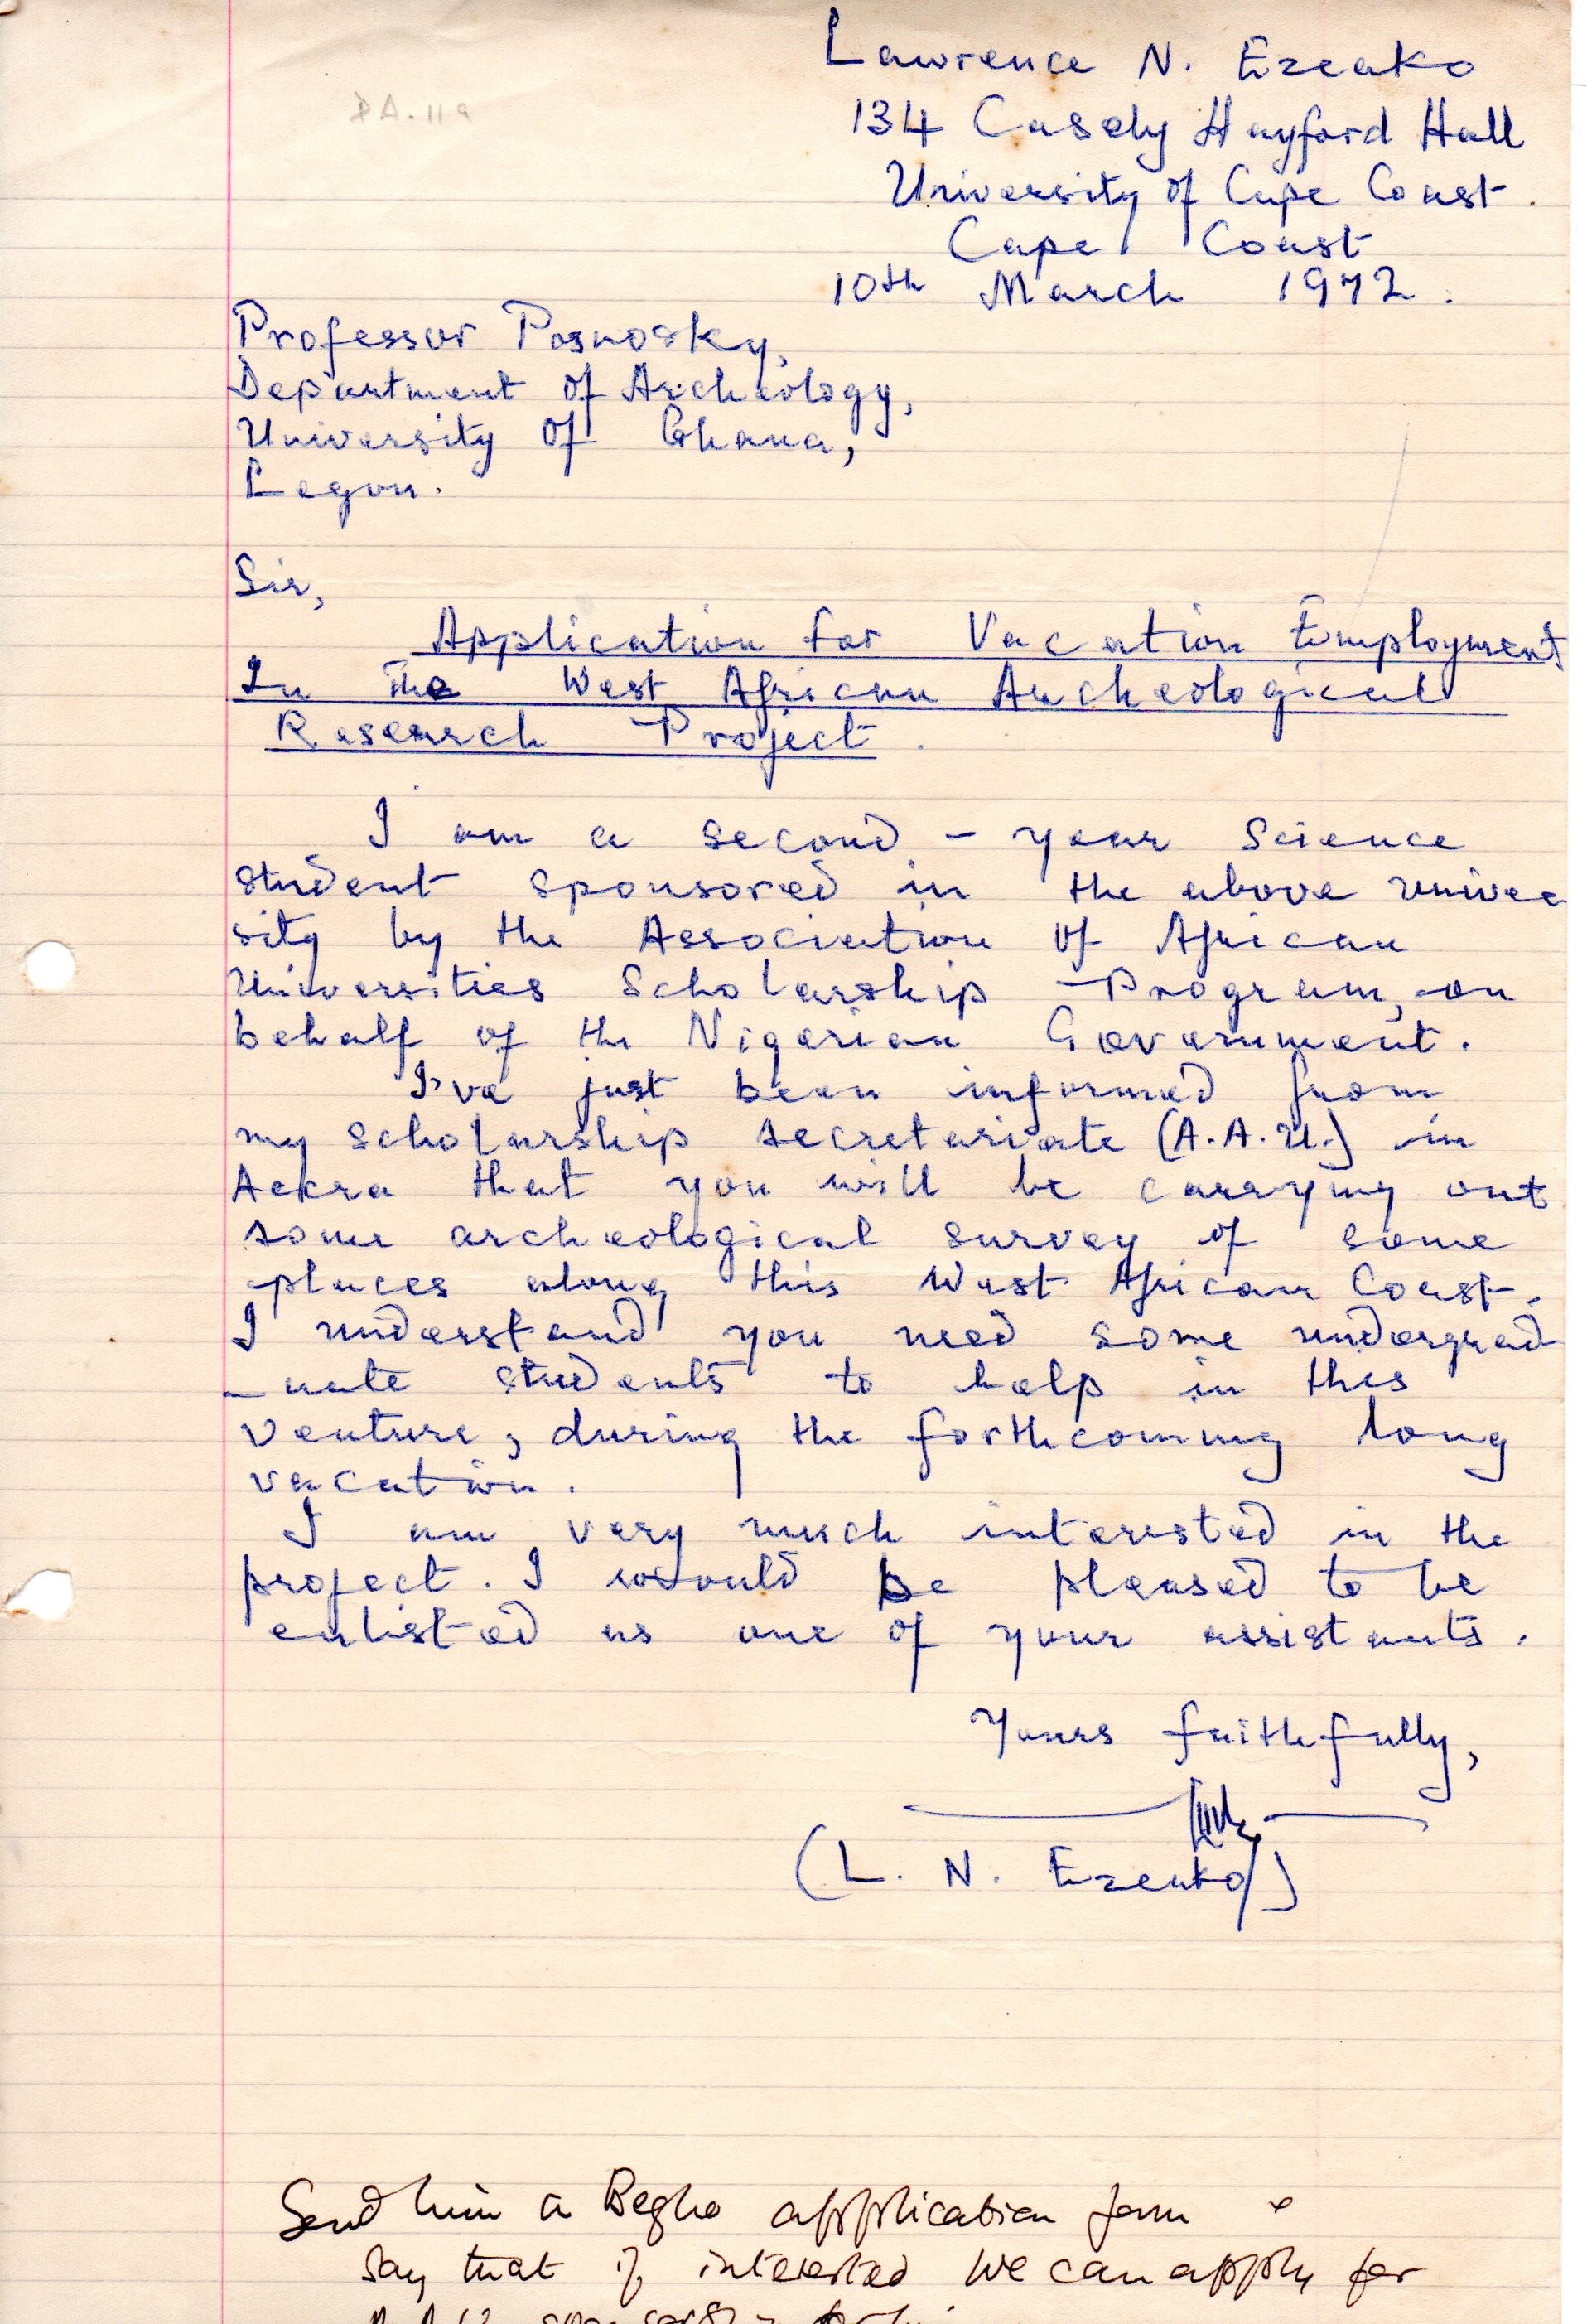 DA.119
Lawrence N. Ezeako
134 Casely Hayford Hall
University of Cape Coast.
Cape Coast
10th March 1972.
Professor Posnosky,
Department of Archeology,
University Of Ghana,
Legon.
Sir,
Application for Vacation Employment
In The West African Archeological
Research Project.
I am a second-year Science
student sponsored in the above univer
sity by the Association of African
Universities Scholarship Program, on
behalf of the Nigerian Government.
I've just been informed from
my scholarship secretariate (A.A.U.) in
Ackra that you will be carrying out
some archeological survey of some
places along this West African Coast.
I understand you need some undergrad
-uate students to help in this
venture, during the forthcoming long
vacation.
I am very much interested in the
project. I would be pleased to be
enlisted as one of your assistants.
Yours faithfully,
(L. N. Ezeako)
Send him a Begho application form &
say that if interested we can apply for